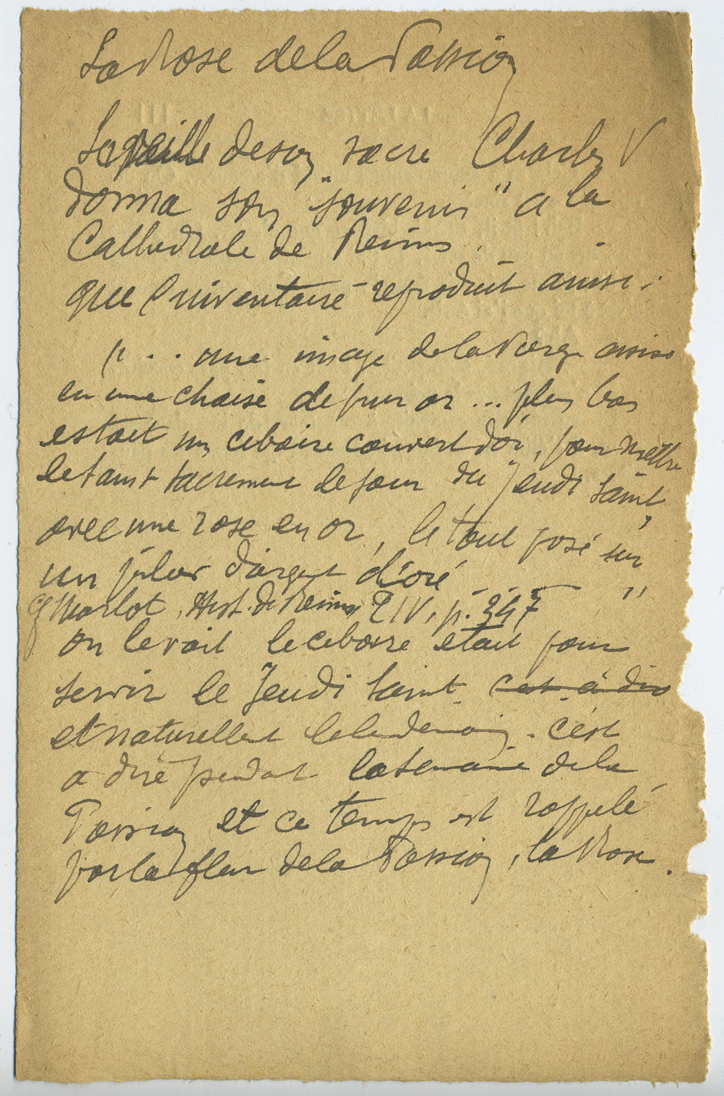 La Rose de la Passion
La veille de son sacre Charles V
donna son "souvenir" a la
Cathédrale de Reims.
que l'inventaire reproduit ainsi :
"... une image de la Vierge assise
en une chaise de pur or ... plus bas
estoit un ciboire couvert d'or, pour mettre
le saint sacrement le jour du jeudi saint
avec une rose en or, le tout posé sur
un pilier d'argent doré "
cf Marlot, Hist. de Reims, T IV, p. 347
on le voit le ciboire était pour
servir le Jeudi Saint c'est à dire
et naturellement le lendemain - c'est
a dire pendant la semaine de la
Passion et ce temps est rappelé
par la fleur de la Passion, la Rose.